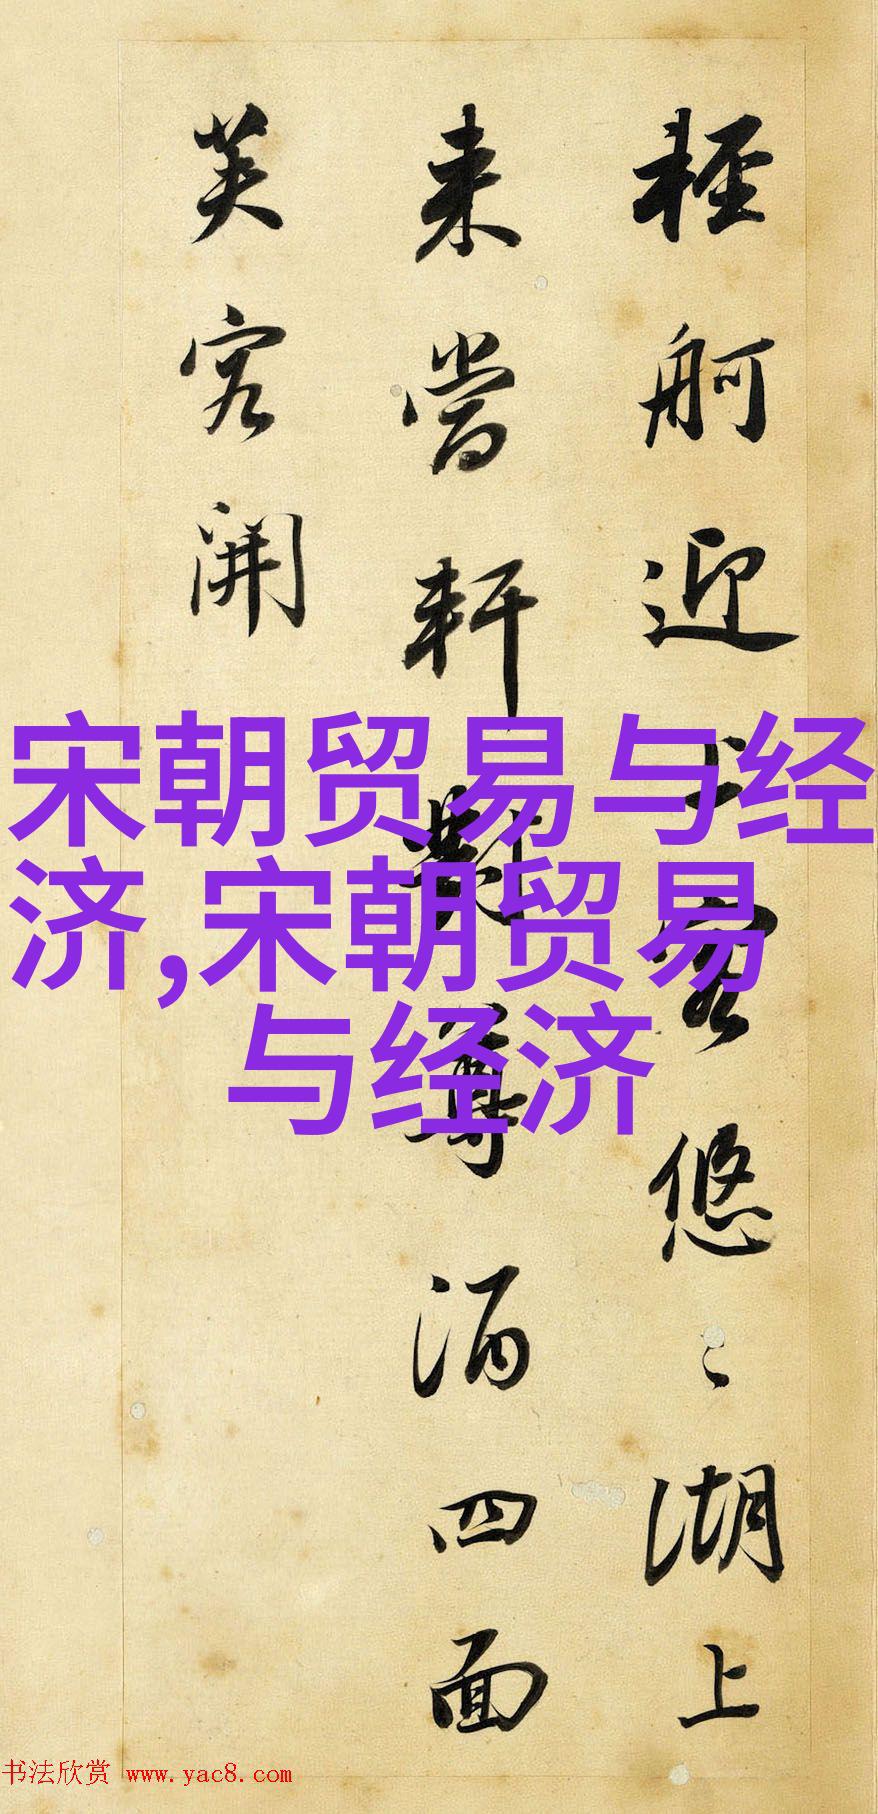 輕舸迎上客悠〻湖上
来當軒對尊酒四面
芙容開
宋朝贸易与经
济,宋朝贸易
与经济
书法欣赏 www.yac8.com